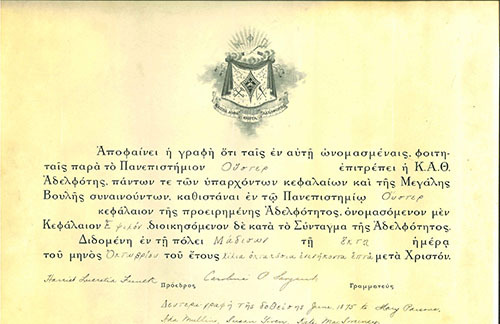 Ἀποφαίνει ἡ γραφὴ ὅτι ταῖς ἐν αὐτῇ ὠνομασμέναις, φοιτη-
ταῖς παρὰ τὸ Πανεπιστήμιον Ουστερ ἐπιτρέπει ἡ Κ.Α.Θ.
Ἀδελφότης, πάντων τε τῶν ὑπαρχόντων κεφαλαίων καὶ τῆς Μεγάλης
Βουλῆς συναινούντων, καθιστάναι ἐν τῷ Πανεπιστημίῳ Ουστερ
κεφάλαιον τῆς προειρημένης Ἀδελφότητος, ὀνομασόμενον μὲν
Κεφάλαιον διοικησόμενον δὲ κατὰ τὸ Σύνταγμα τῆς Ἀδελφότητος.
Διδομένη ἐν τῇ πόλει Μάδισων τῇ ἕκτῃ ἡμέρᾳ
τοῦ μηνὸς Ὀκτωβρίου τοῦ ἔτους ἑπτά μετὰ Χριστόν.
Harriet Lucretia Caroline
Πρόεδρος Γραμματεύς
Δευτερα γραφὴ τῆς δοθείσης June 1875 to Mary Parsons,
Ida Mullins, Susan Kate